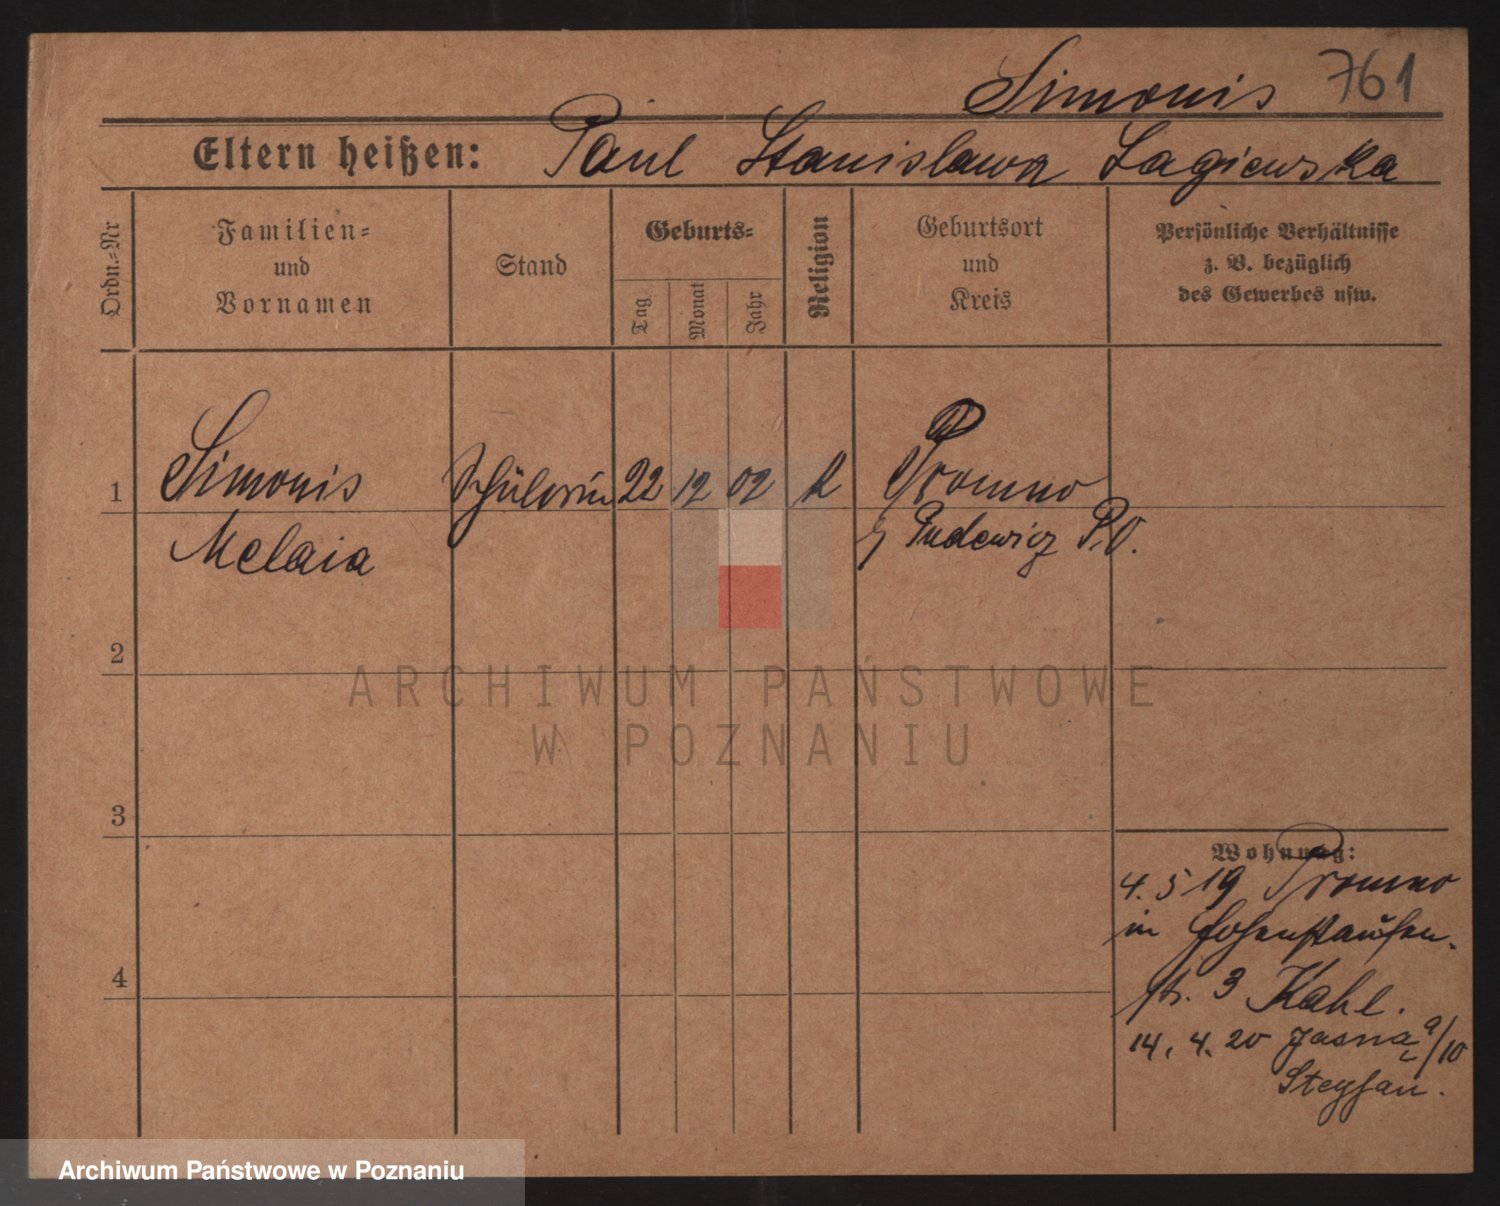 Simonis 761
Eltern heißen: Paul Stanislawa Lagiewska
Ordn.=Nr
Familien=
und
Vornamen
Stand
Geburts=
Tag
Monat
Jahr
Religion
Geburtsort
und
Kreis
Persönliche Verhältnisse
z. B. bezüglich
des Gewerbes usw.
1 Simonis Schülerin 22 12 02 k Promno
Melaia Pudewicz P.O.
2
ARCHIWUM PAŃSTWOWE
W POZNANIU
3
Wohnung:
4. 5 19 Promno
in Hohenstaufen.
4 str. 3 Kahl.
14. 4. 20 Jasna 9/10
Archiwum Państwowe w Poznaniu